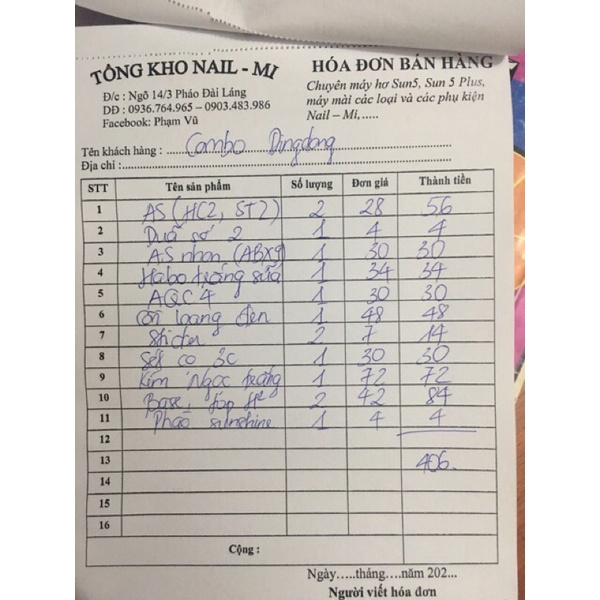 TỔNG KHO NAIL - MI
Đ/c : Ngõ 14/3 Pháo Đài Láng
DĐ : 0936.764.965 – 0903.483.986
Facebook: Phạm Vũ
HÓA ĐƠN BÁN HÀNG
Chuyên máy hơ Sun5, Sun 5 Plus,
máy mài các loại và các phụ kiện
Nail – Mi,.....
Tên khách hàng : Combo Dingdong
Địa chỉ :
STT Tên sản phẩm Số lượng Đơn giá Thành tiền
1 AS (HC2, ST2) 2 28 56
2 Duã sơ 2 1 4 4
3 AS nhon (ABX9) 1 30 30
4 Habo trắng sữa 1 34 34
5 AQC 4 1 30 30
6 Cồn loang đen 1 48 48
7 Sticker 2 7 14
8 Set cọ 3c 1 30 30
9 Kìm Ngọc trắng 1 72 72
10 Base, top 2 42 84
11 Phao sunshine 1 4 4
12
13 406
14
15
16
Cộng :
Ngày.....tháng....năm 202...
Người viết hóa đơn